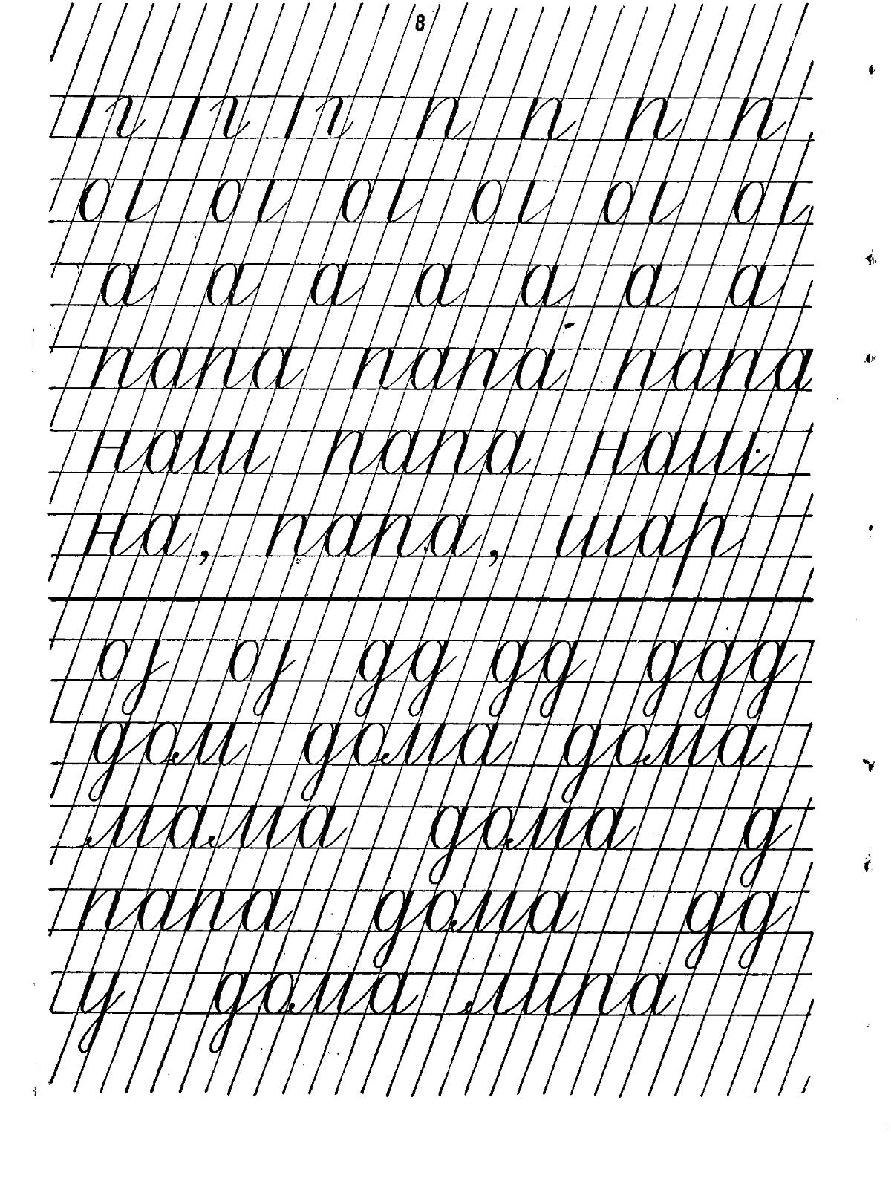 8
п п п п п п п
а а а а а а
а а а а а а а
папа папа папа
наш папа наш
на, папа, шар
д д дд дд ддд
дом дома дома
мама дома д
папа дома дд
у дома липа